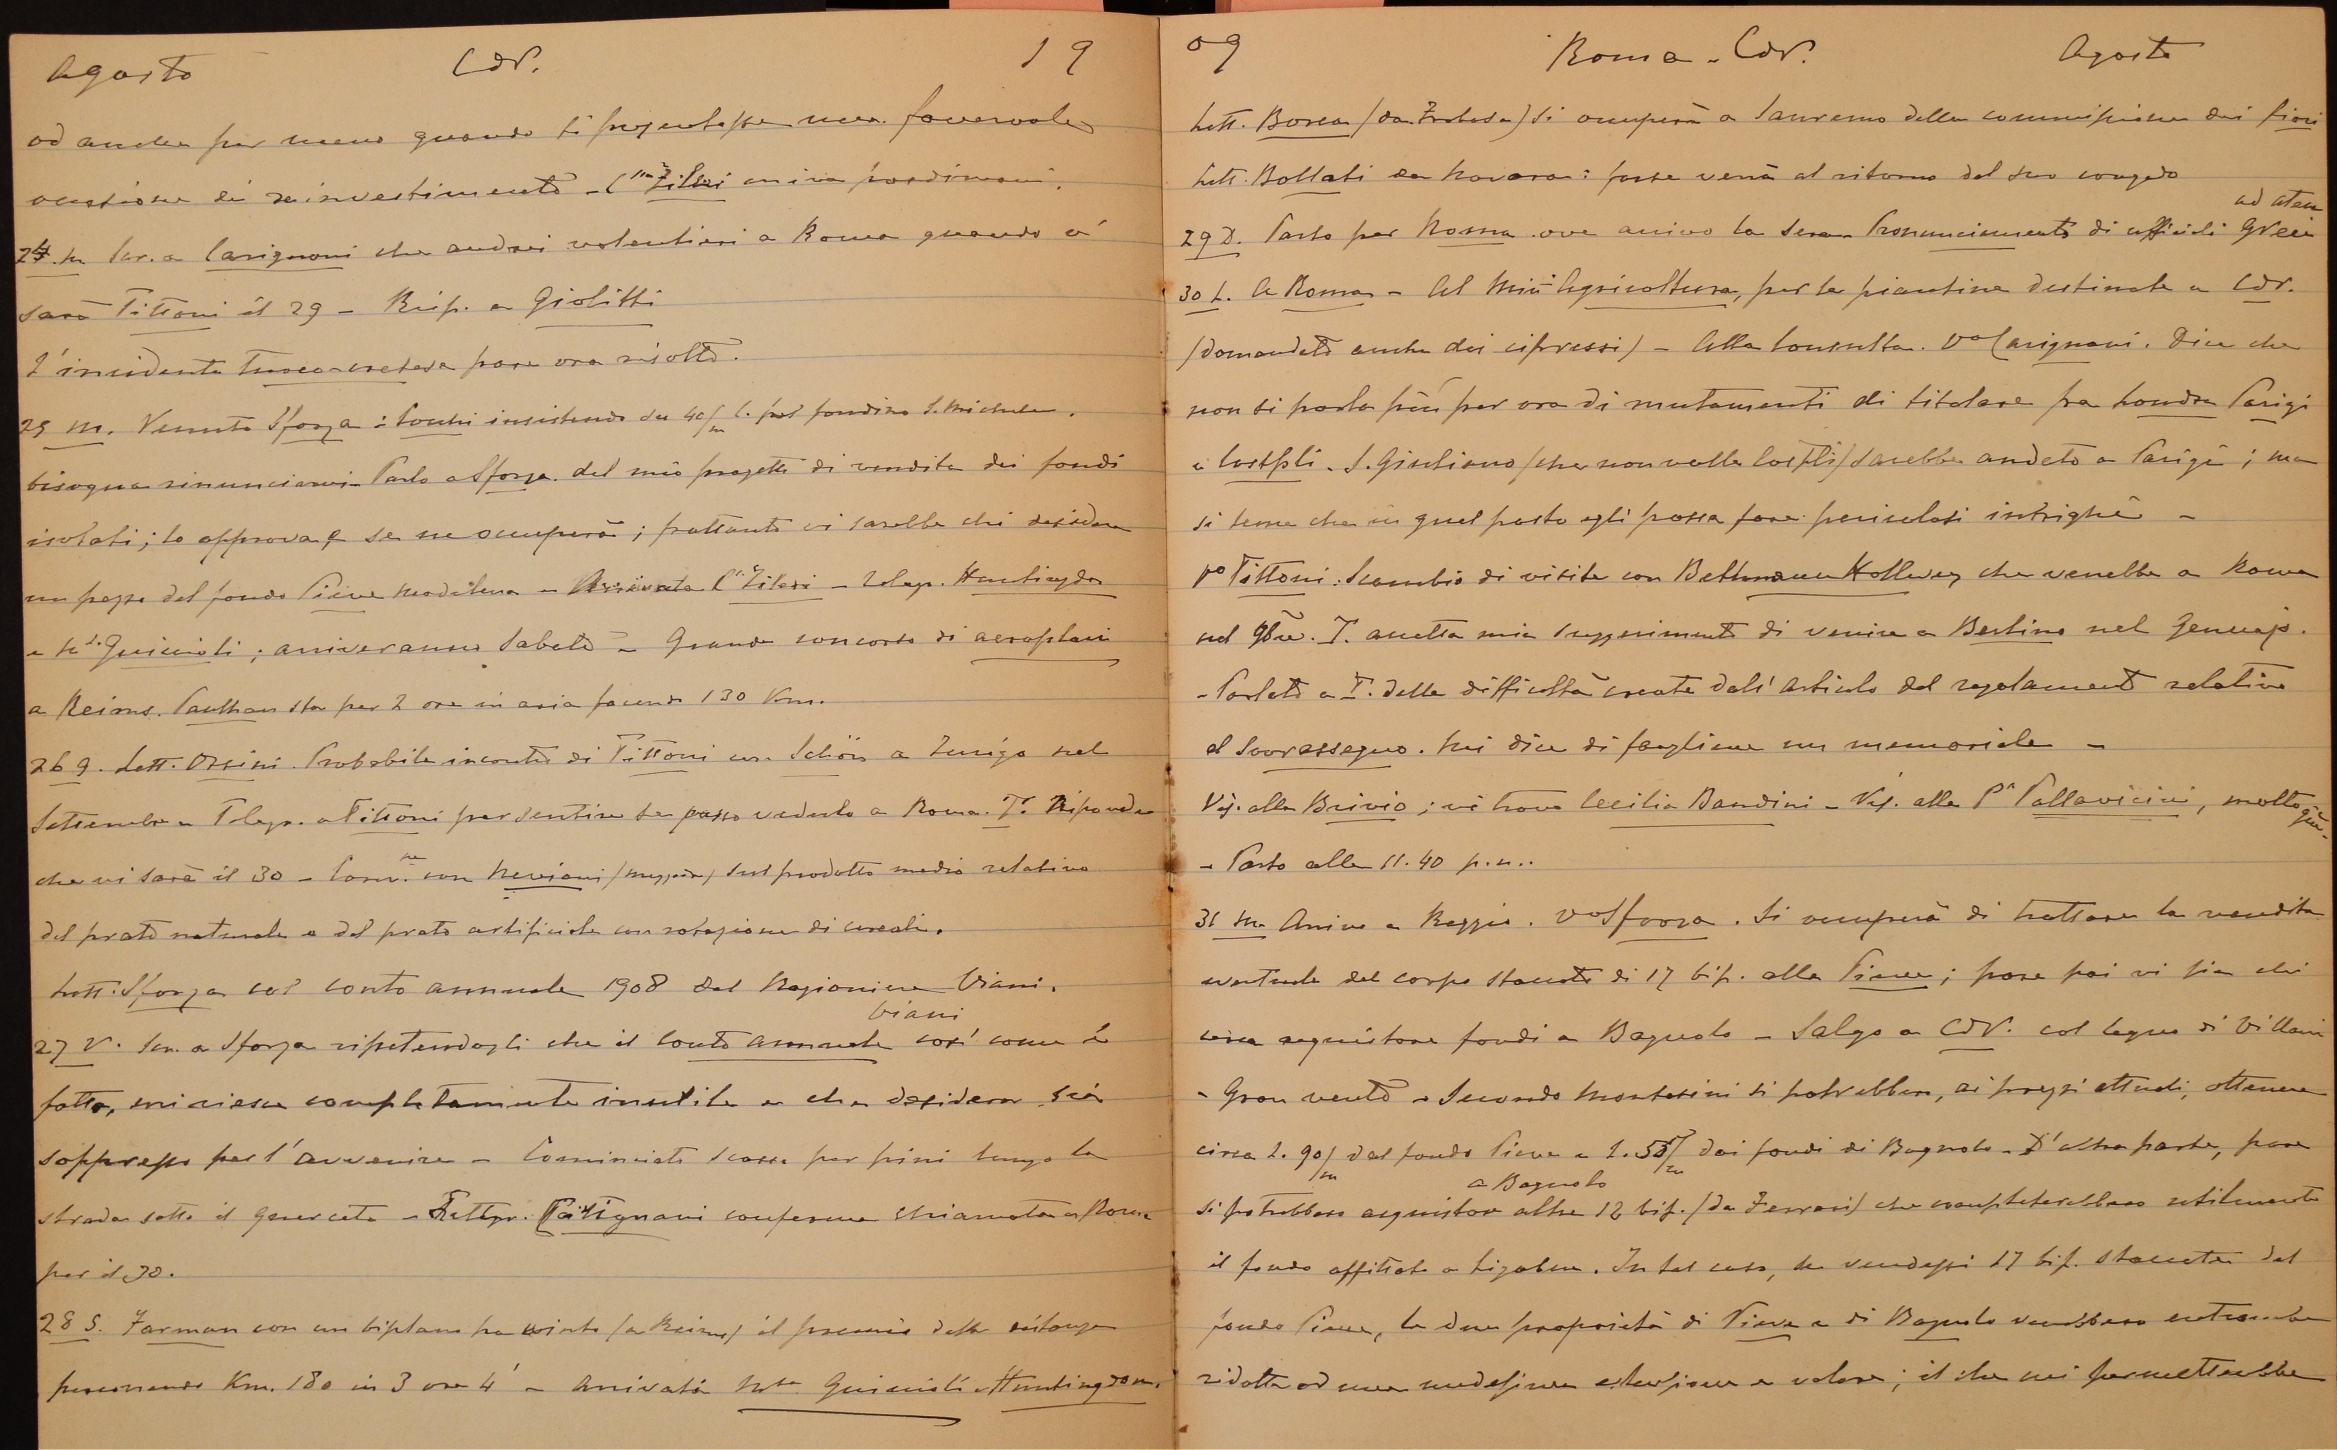 Agosto CdV. 19
od anche per meno quando si presentasse una favorevole
occasione di reinvestimento - C.ssa Zileri arriva
24. M Scr. a Carignani che andrei volentieri a Roma quando vi
sarà Tittoni il 29 - Risp. a Giolitti
L'incidente turco-cretese pare ora risolto.
25 M. Venuto Sforza: insistendo su 40/m L. pel fondino S. Michele,
bisogna rinunciarvi - Parlo a Sforza del mio progetto di vendita dei fondi
isolati; lo approva e se ne occuperà; frattanto vi sarebbe chi desidera
un pezzo del fondo Pieve Modolena - Arrivata C.ssa Zileri - Telegr. Huntingdon
e Guiccioli; arriveranno sabato - Grande concorso di aeroplani
a Reims. Paulhan sta per 2 ore in aria facendo 130 Km.
26 G. Lett. Orsini. Probabile incontro di Tittoni con Schön a Zurigo nel
Settembre - Telegr. a Tittoni per sentire se posso vederlo a Roma. T. risponde
che vi sarà il 30 - Conv.ne con Neviani sul prodotto medio relativo
del prato naturale e del prato artificiale con rotazione di cereali.
Lett. Sforza col conto annuale 1908 del Ragioniere Viani.
Viani
27 V. Scr. a Sforza ripetendogli che il conto annuale così come è
fatto, mi riesce completamente inutile e che desidero sia
soppresso per l'avvenire - Cominciati scassi per pini lungo la
strada sotto il querceto - Carignani conferma chiamata a Roma
per il 30.
28 S. Farman con un biplano ha vinto (a Reims) il premio della
percorrendo Km. 180 in 3 ore 4' - Arrivati Guiccioli e Huntingdon.
09 Roma - CdV. Agosto
Lett. Borea si occuperà a Sanremo della commissione dei fiori
Lett. Bollati da Novara: forse verrà al ritorno del suo congedo
ad Atene
29 D. Parto per Roma ove arrivo la sera - Pronunciamento di ufficiali Greci
30 L. A Roma - Al Min. Agricoltura, per le piantine destinate a CdV.
(domandato anche dei cipressi) - Alla Consulta. V° Carignani. Dice che
non si parla più per ora di mutamenti di titolare fra Londra Parigi
e Costpli. S. Giuliano (che non volle Costpli) sarebbe andato a Parigi; ma
si teme che in quel posto egli possa fare pericolosi intrighi -
V° Tittoni: Scambio di visite con Bethmann Hollweg che verrebbe a Roma
nel 9bre. T. accetta mio suggerimento di venire a Berlino nel Gennaio.
- Parlato a T. delle difficoltà create dall'articolo del regolamento relativo
al sovrassegno. Mi dice di fargliene un memoriale -
Vis. alla Brivio; vi trovo Cecilia Bandini - Vis. alla P.ssa Pallavicini, molto giù.
- Parto alle 11.40 p.m.
31 M Arrivo a Reggio. V° Sforza. Si occuperà di trattare la vendita
eventuale del corpo staccato di 17 bif. alla Pieve; pare poi vi sia chi
cerca acquistare fondi a Bagnolo - Salgo a CdV. col legno di Villani
- Gran vento - Secondo Montesini si potrebbero, ai prezzi attuali, ottenere
circa L. 90/m dal fondo Pieve e L. 55/m dai fondi di Bagnolo - D'altra parte, pare
a Bagnolo
si potrebbero acquistare altre 12 bif. (da Ferrari) che completerebbero utilmente
il fondo affittato a Ligabue. In tal caso, se vendessi 17 bif. staccate dal
fondo Pieve, le due proprietà di Pieve e di Bagnolo verrebbero entrambe
ridotte ad una medesima estensione e valore; il che mi permetterebbe